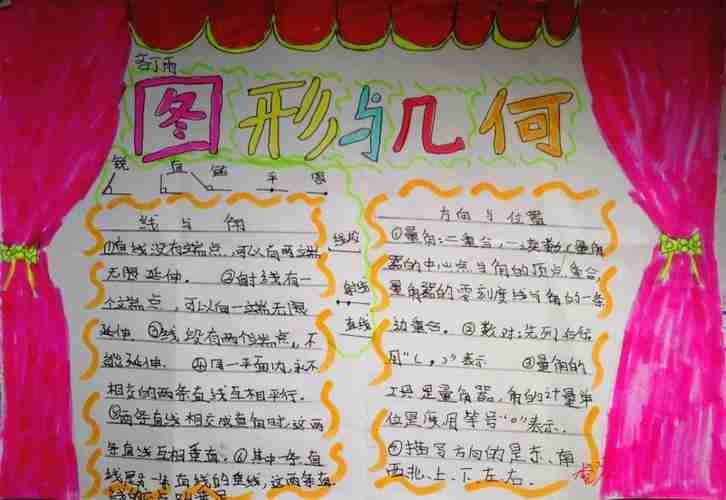 图形与几何
锐 直 钝 平 周
线与角
①直线没有端点,可以向两端
无限延伸。②射线有一
个端点,可以向一端无限
延伸。③线段有两个端点,不
能延伸。④同一平面内,永不
相交的两条直线互相平行。
⑤两条直线相交成直角时,这两
条直线互相垂直。⑥其中一条直
线是另一条直线的垂线,这两条直
线段
射线
直线
方向与位置
①量角:二重合,一读数(量角
器的中心点与角的顶点重合
量角器的零刻度线与角的一条
边重合。②数对:先列后行
用"( , )"表示 ③量角的
工具是量角器,角的计量单
位是度用符号"°"表示.
④描写方向的是东、南
西、北、上、下、左、右.